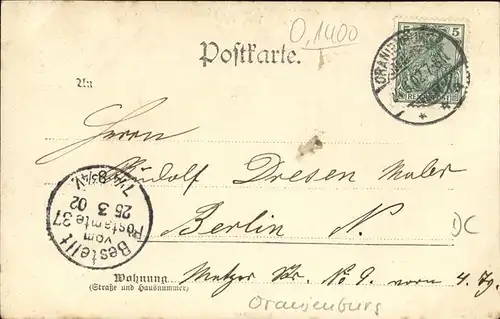 0,1400
5
ORANIENBURG
Postkarte.
An
Herrn
Rudolf Dresen Maler
Berlin N.
DC
Bestellt
vom
Postamte 37
25 3 02
Wohnung Metzer Str. No 9. vorn 4. Tg.
(Straße und Hausnummer)
Oranienburg